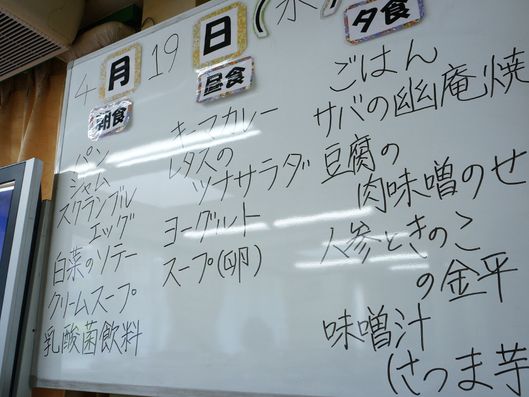 4月19日(水)
朝食
パン
ジャム
スクランブル
エッグ
白菜のソテー
クリームスープ
乳酸菌飲料
昼食
キーマカレー
レタスの
ツナサラダ
ヨーグルト
スープ(卵)
夕食
ごはん
サバの幽庵焼
豆腐の
肉味噌のせ
人参ときのこ
の金平
味噌汁
(さつま芋